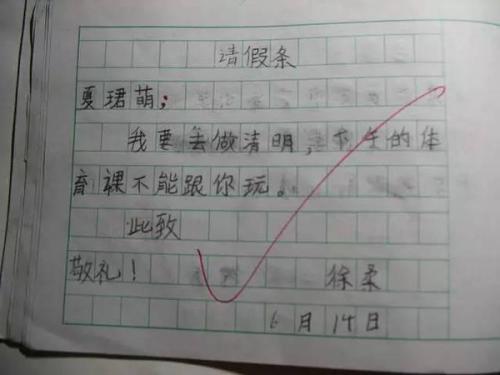 请假条
夏珺萌:
我要去做清明,今天的体
育裸不能跟你玩。
此致
敬礼! 徐柔
6月14日